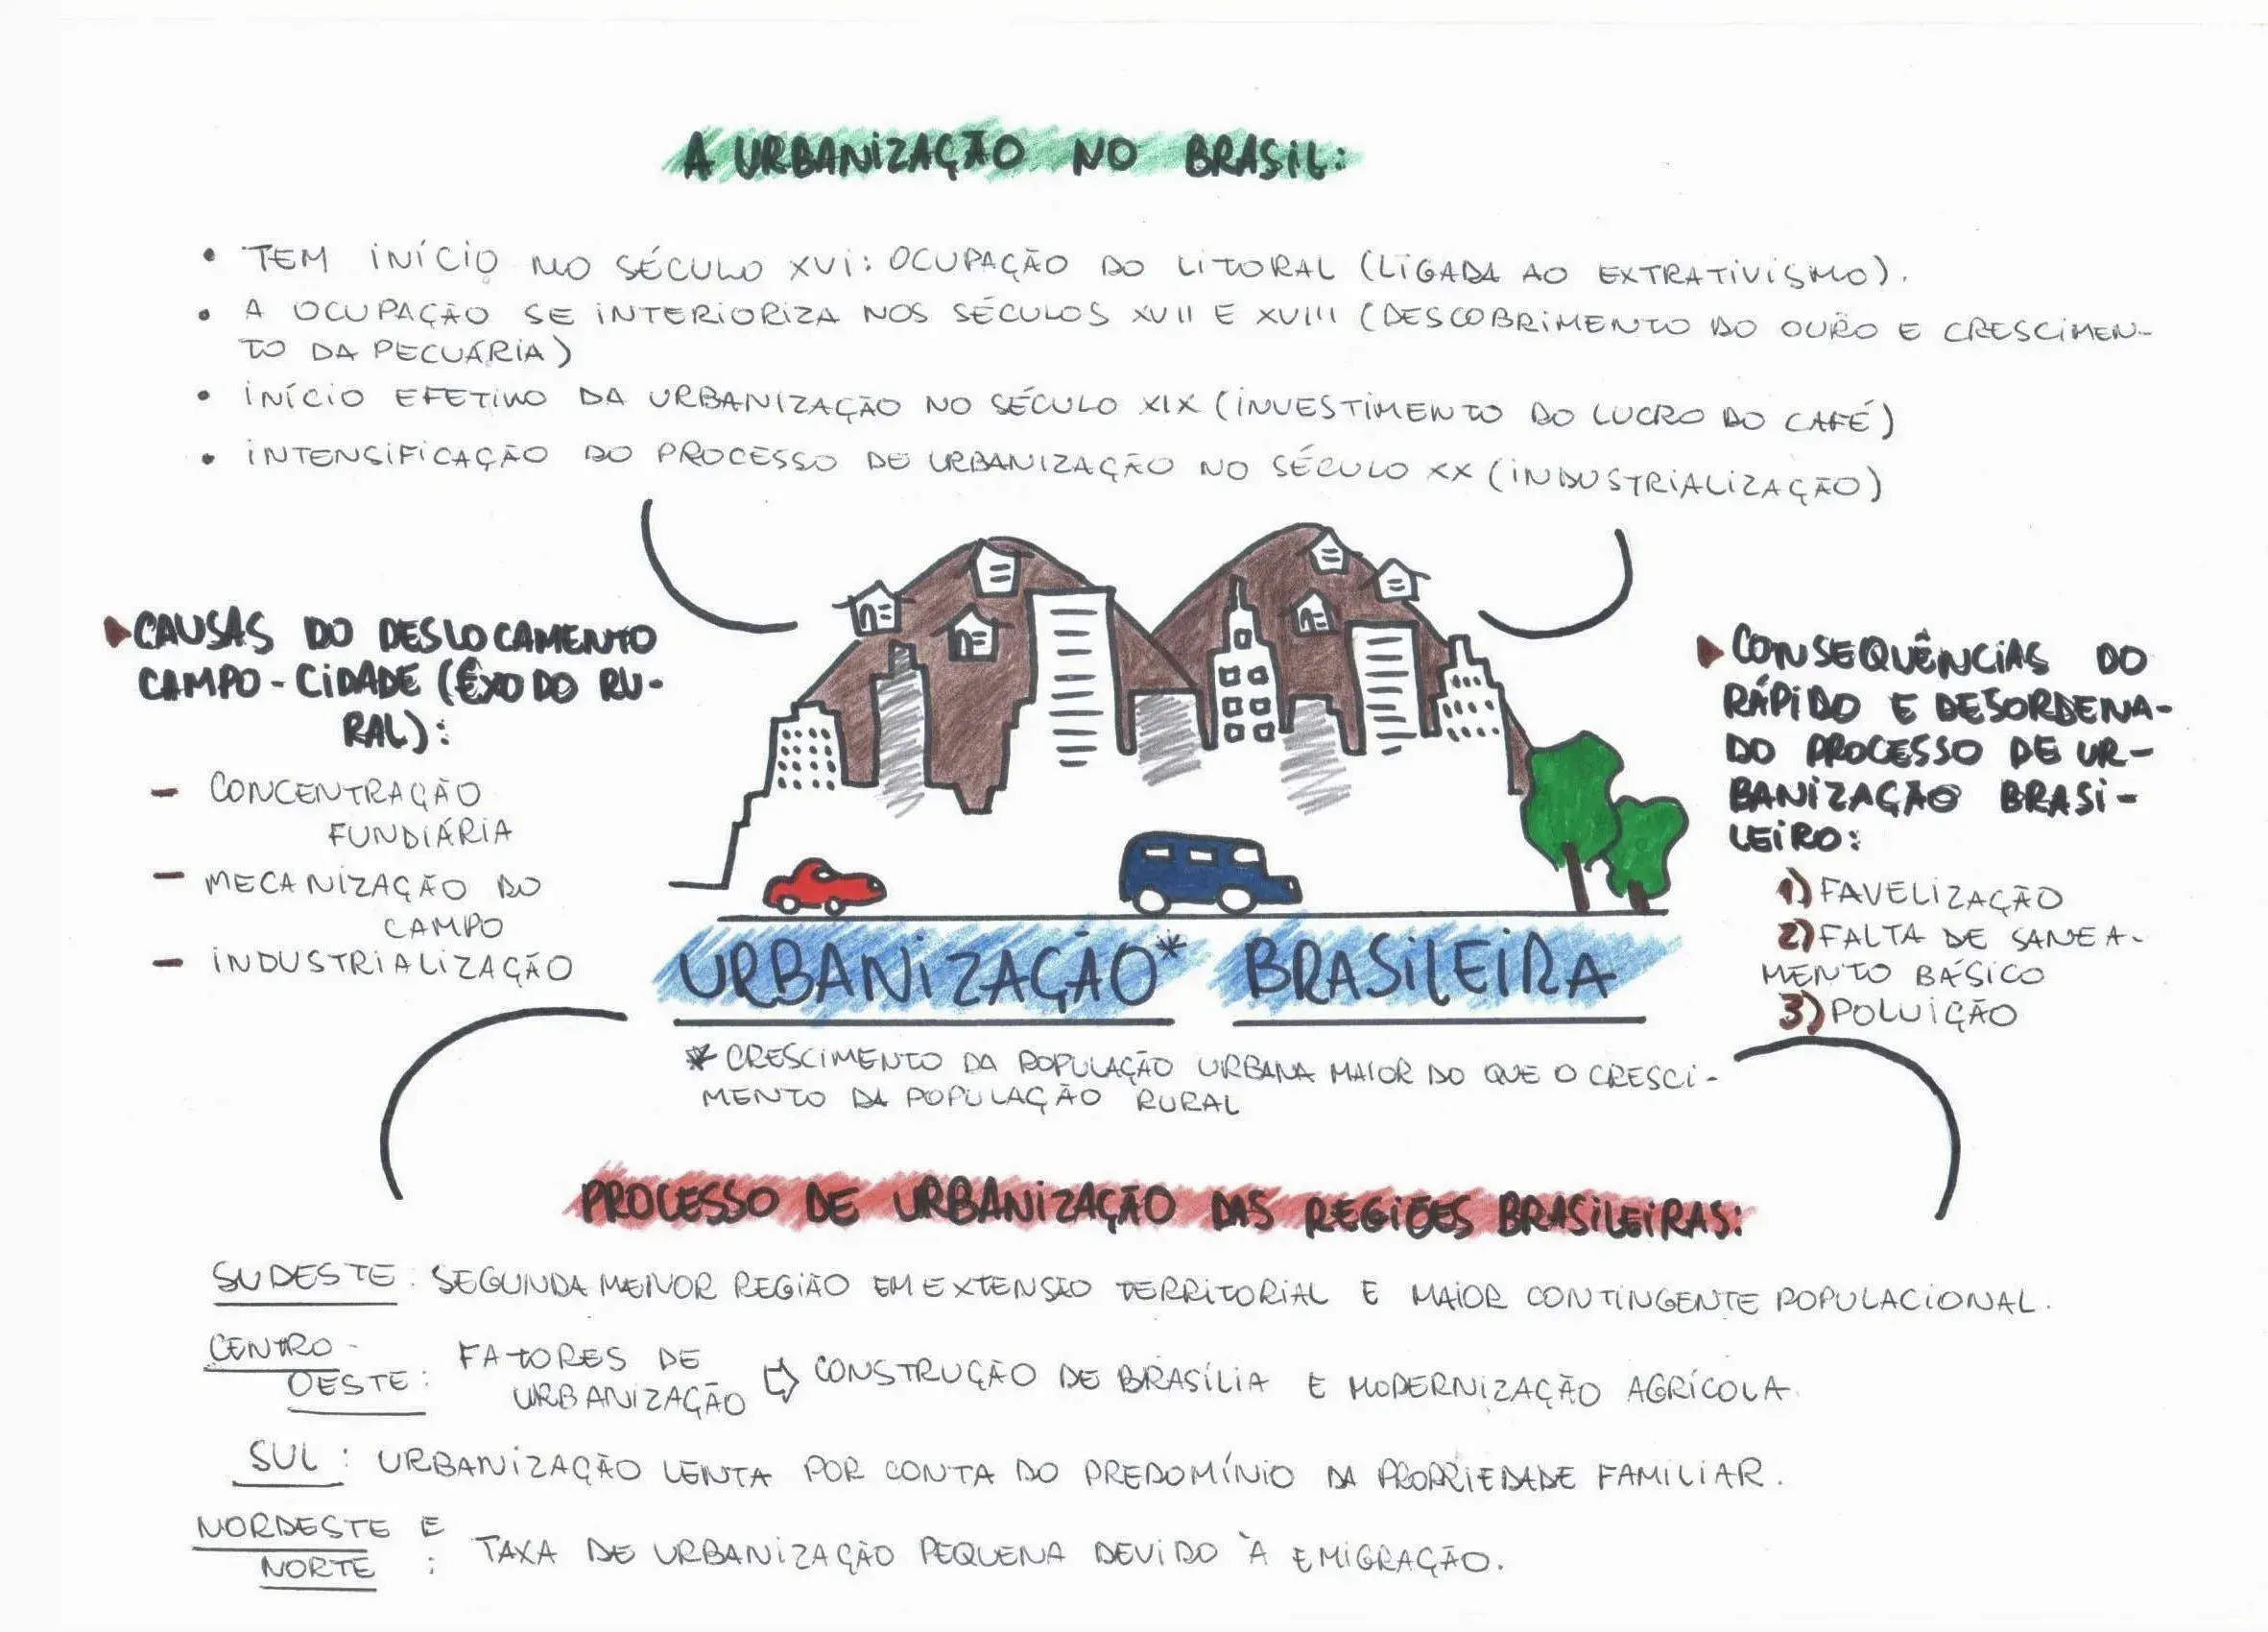 A URBANIZAÇÃO NO BRASIL:
• TEM INÍCIO NO SÉCULO XVI: OCUPAÇÃO DO LITORAL (LIGADA AO EXTRATIVISMO).
• A OCUPAÇÃO SE INTERIORIZA NOS SÉCULOS XVII E XVIII (DESCOBRIMENTO DO OURO E CRESCIMEN-
TO DA PECUÁRIA)
• INÍCIO EFETIVO DA URBANIZAÇÃO NO SÉCULO XIX (INVESTIMENTO DO LUCRO DO CAFÉ)
• INTENSIFICAÇÃO DO PROCESSO DE URBANIZAÇÃO NO SÉCULO XX (INDUSTRIALIZAÇÃO)
CAUSAS DO DESLOCAMENTO
CAMPO-CIDADE (ÊXODO RU-
RAL):
- CONCENTRAÇÃO
FUNDIÁRIA
- MECANIZAÇÃO DO
CAMPO
- INDUSTRIALIZAÇÃO
CONSEQUÊNCIAS DO
RÁPIDO E DESORDENA-
DO PROCESSO DE UR-
BANIZAÇÃO BRASI-
LEIRO:
1) FAVELIZAÇÃO
2) FALTA DE SANEA-
MENTO BÁSICO
3) POLUIÇÃO
URBANIZAÇÃO* BRASILEIRA
* CRESCIMENTO DA POPULAÇÃO URBANA MAIOR DO QUE O CRESCI-
MENTO DA POPULAÇÃO RURAL
PROCESSO DE URBANIZAÇÃO DAS REGIÕES BRASILEIRAS:
SUDESTE: SEGUNDA MENOR REGIÃO EM EXTENSÃO TERRITORIAL E MAIOR CONTINGENTE POPULACIONAL.
CENTRO-
OESTE: FATORES DE
URBANIZAÇÃO ⇨ CONSTRUÇÃO DE BRASÍLIA E MODERNIZAÇÃO AGRÍCOLA.
SUL: URBANIZAÇÃO LENTA POR CONTA DO PREDOMÍNIO DA PROPRIEDADE FAMILIAR.
NORDESTE E
NORTE: TAXA DE URBANIZAÇÃO PEQUENA DEVIDO À EMIGRAÇÃO.